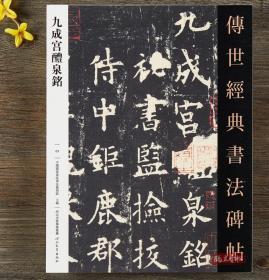 傳世經典書法碑帖
九成宮醴泉銘
九成宮醴泉銘
秘書監撿挍
侍中鉅鹿郡